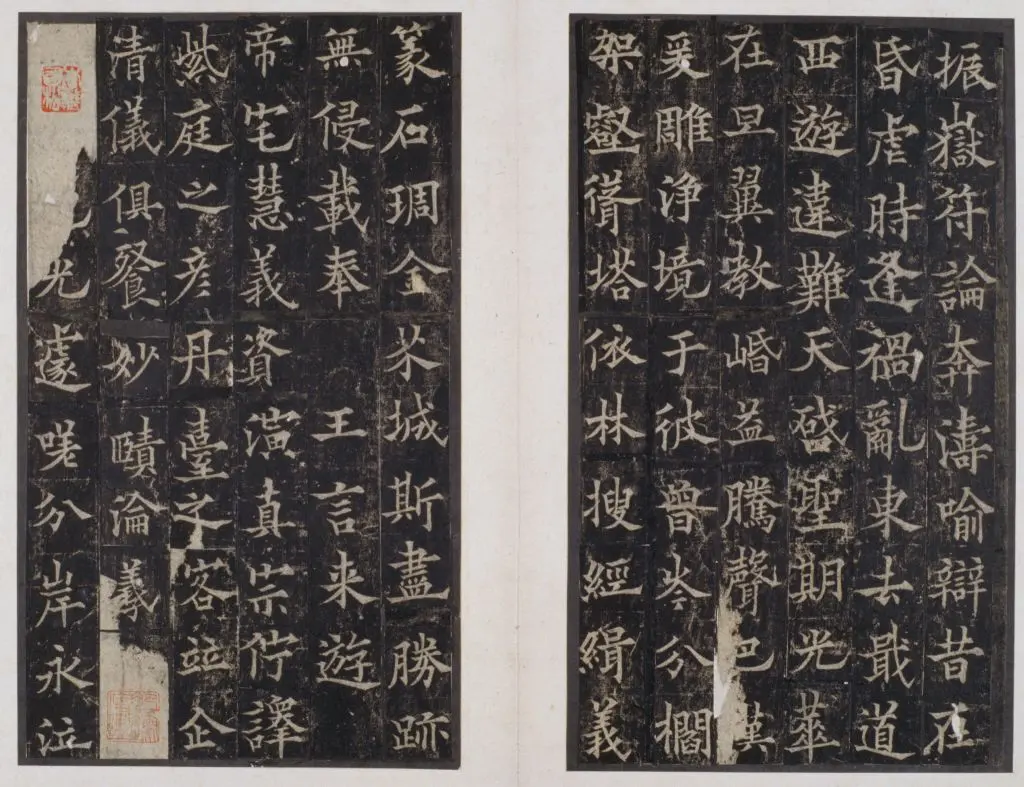 振嶽符論奔濤喻辯昔在
昏虐時逢禍亂東去戢道
西遊違難天啓聖期光華
在旦翼教崏益騰聲巴漢
爰雕淨境于彼曾岑分櫩
架壑聳塔依林搜經緝義
篆石琱金芥城斯盡勝跡
無侵載奉 王言来遊
帝宅慧義資演真宗佇譯
紫庭之彦丹臺之客竝企
清儀俱餐妙賾淪羲
光遽嗟分岸永泣